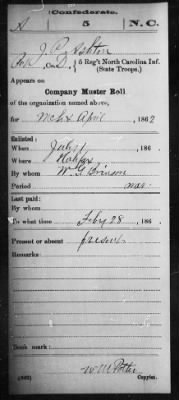 Confederate.
A 5 N.C.
J. P. Ashton
Co. D., 5 Reg't North Carolina Inf.
(State Troops.)
Appears on
Company Muster Roll
of the organization named above,
for Mch & April, 1862
Enlisted:
When July 1, 186
Where Halifax
By whom W. J. Brinson
Period war
Last paid:
By whom
To what time Feby 28, 186
Present or absent present
Remarks:
Book mark:
(642) W. M. Potter Copyist.